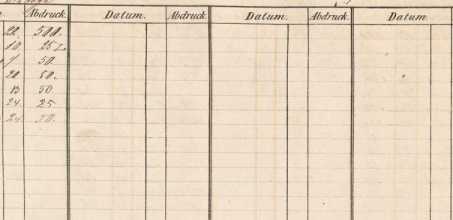 Abdruck. Datum. Abdruck. Datum. Abdruck. Datum
20 500.
10 25
9 50.
20 50.
13 50
24 25
24 20.